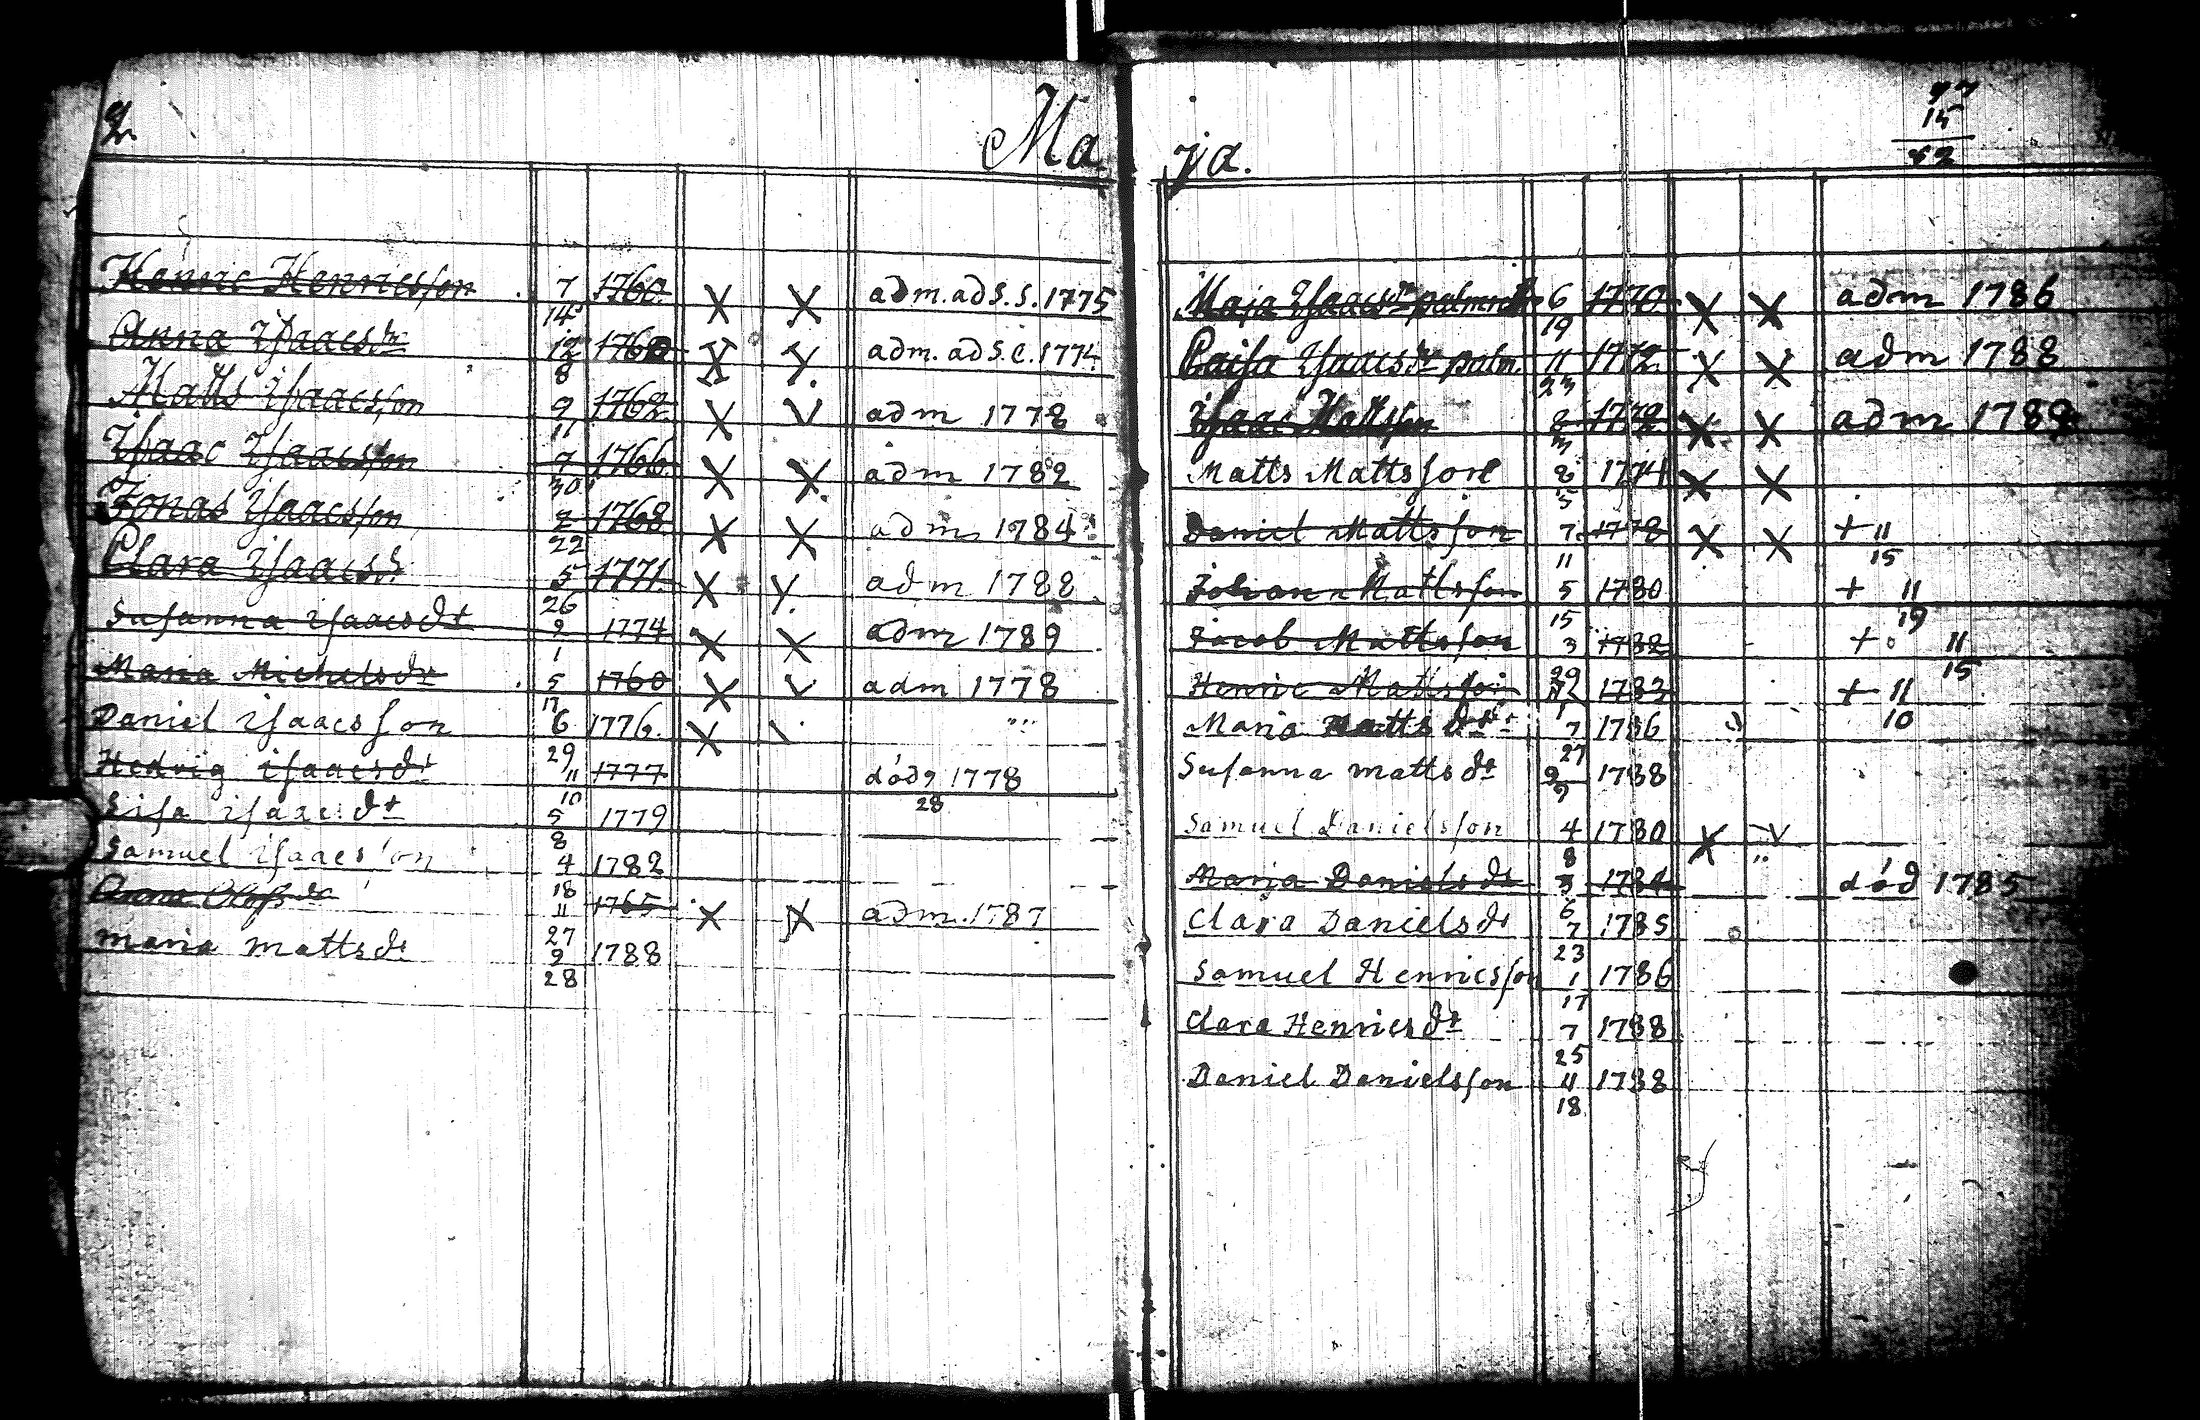 2.
Maja.
Henric Henricsson 7/14 1760 X X adm. ad S. S. 1775
Anna Isaacsdr 12/8 1760 X X adm. ad S. C. 1774
Matts Isaacsson 9/11 1762 X V adm 1778
Isaac Isaacsson 7/30 1766 X X adm 1782
Jonas Isaacsson 2/22 1768 X X adm 1784
Clara Isaacsd 5/26 1771 X X adm 1788
Susanna Isaacsdr 9/1 1774 X X adm 1789
Maria Michelsdr 5/17 1760 X V adm 1778
Daniel Isaacsson 6/29 1776 X \
Hedvig Isaacsdr 11/10 1777 död 9/28 1778
Lisa Isaacsdr 5/8 1779
Samuel Isaacsson 4/18 1782
Anna Olofsdr 11/27 1765 X X adm. 1787
Maria Mattsdr 9/28 1788
47
15
Maja Isaacsdr 6/19 1770 X X adm 1786
Caisa Isaacsdr palm. 11/23 1772 X X adm 1788
Isaac Mattsson 8/3 1772 X X adm 1789
Matts Mattsson 8/5 1774 X X
Daniel Mattsson 7/11 1778 X X + 11/15
Johan Mattsson 5/15 1780 + 11/19
Jacob Mattsson 3/29 1782 + 11/15
Henric Mattsson 12/1 1783 + 11/10
Maria Mattsdr 7/27 1786
Susanna Mattsdr 9/9 1788
Samuel Danielsson 4/8 1780 X V
Maria Danielsdr 3/6 1784 död 1785
Clara Danielsdr 7/23 1785
Samuel Henricsson 1/17 1786
Clara Henricsdr 7/25 1788
Daniel Danielsson 11/18 1788